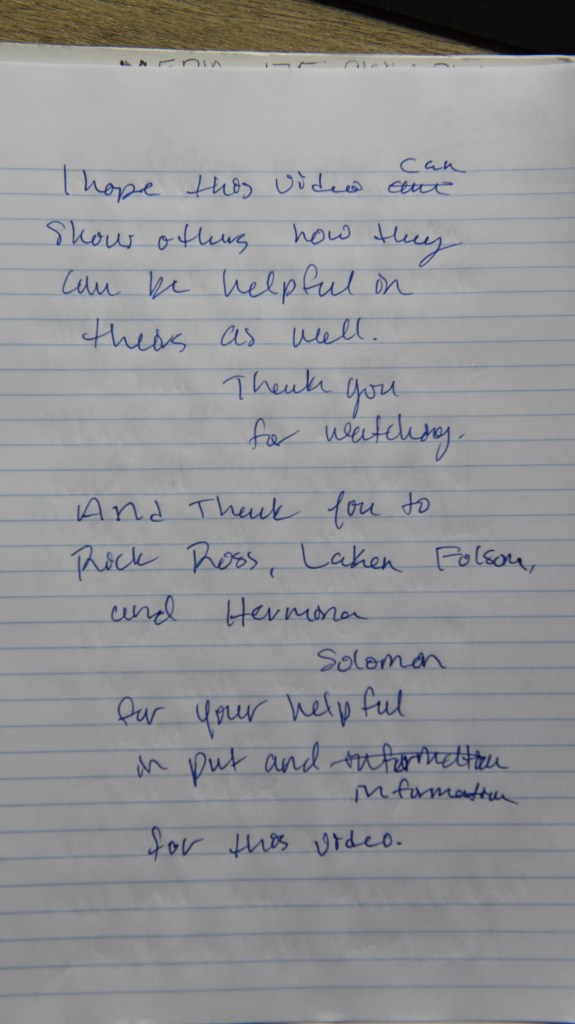 I hope this video can
Show others how they
can be helpful in
theirs as well.
Thank you
for watching.
And Thank you to
Rick Ross, Laken Folsom,
and Hermona
Solomon
for your helpful
in put and information
information
for this video.